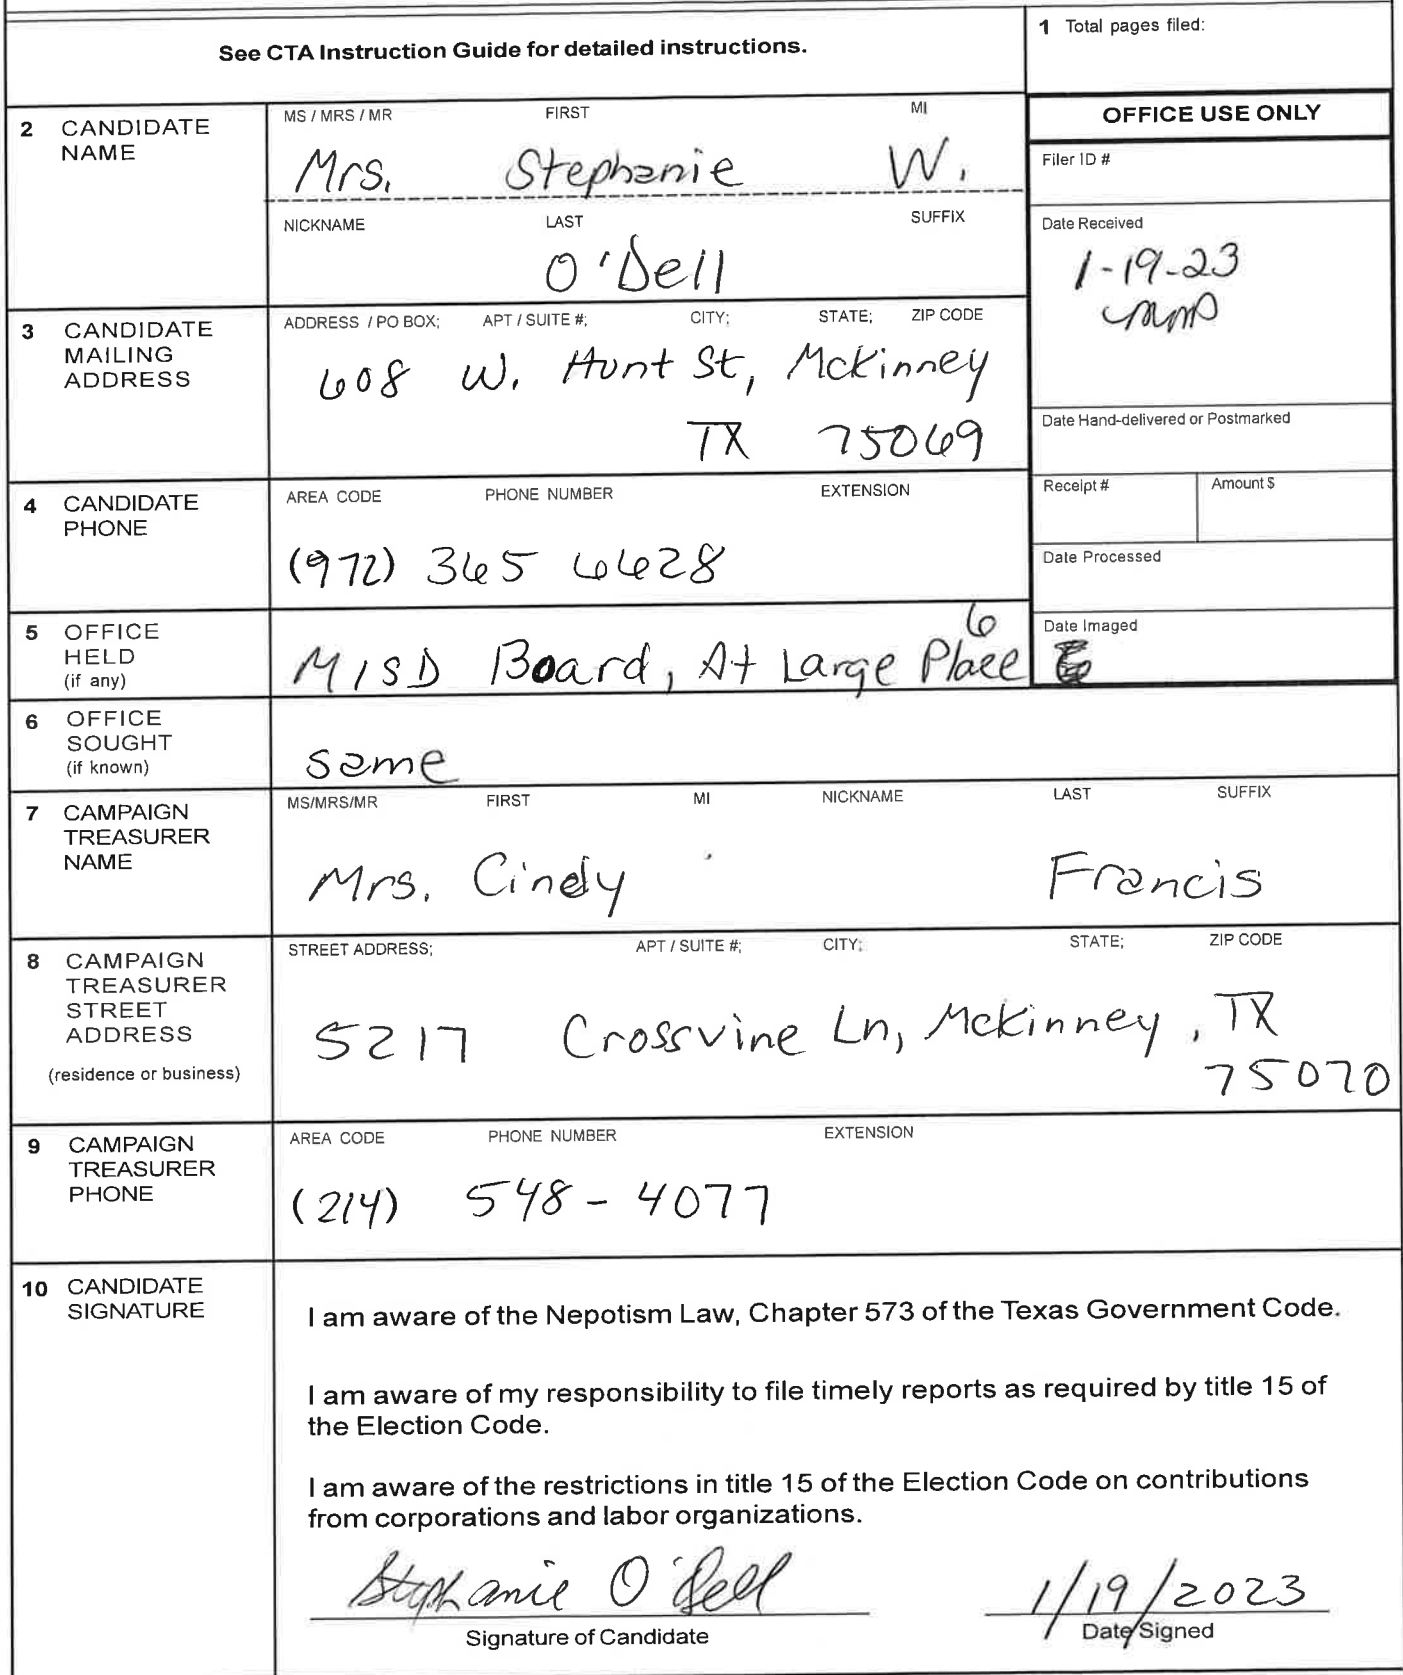 See CTA Instruction Guide for detailed instructions.
1 Total pages filed:
2 CANDIDATE NAME
MS / MRS / MR FIRST MI
Mrs. Stephanie W.
NICKNAME LAST SUFFIX
O'Dell
OFFICE USE ONLY
Filer ID #
Date Received
1-19-23
Date Hand-delivered or Postmarked
Receipt # Amount $
Date Processed
Date Imaged
3 CANDIDATE MAILING ADDRESS
ADDRESS / PO BOX; APT / SUITE #; CITY; STATE; ZIP CODE
608 W. Hunt St, McKinney
TX 75069
4 CANDIDATE PHONE
AREA CODE PHONE NUMBER EXTENSION
(972) 365 6628
5 OFFICE HELD (if any)
6
MISD Board, At Large Place
6 OFFICE SOUGHT (if known)
same
7 CAMPAIGN TREASURER NAME
MS/MRS/MR FIRST MI NICKNAME LAST SUFFIX
Mrs. Cindy Francis
8 CAMPAIGN TREASURER STREET ADDRESS
(residence or business)
STREET ADDRESS; APT / SUITE #; CITY; STATE; ZIP CODE
5217 Crossvine Ln, McKinney, TX
75070
9 CAMPAIGN TREASURER PHONE
AREA CODE PHONE NUMBER EXTENSION
(214) 548-4077
10 CANDIDATE SIGNATURE
I am aware of the Nepotism Law, Chapter 573 of the Texas Government Code.
I am aware of my responsibility to file timely reports as required by title 15 of
the Election Code.
I am aware of the restrictions in title 15 of the Election Code on contributions
from corporations and labor organizations.
Stephanie O'Dell 1/19/2023
Signature of Candidate Date Signed